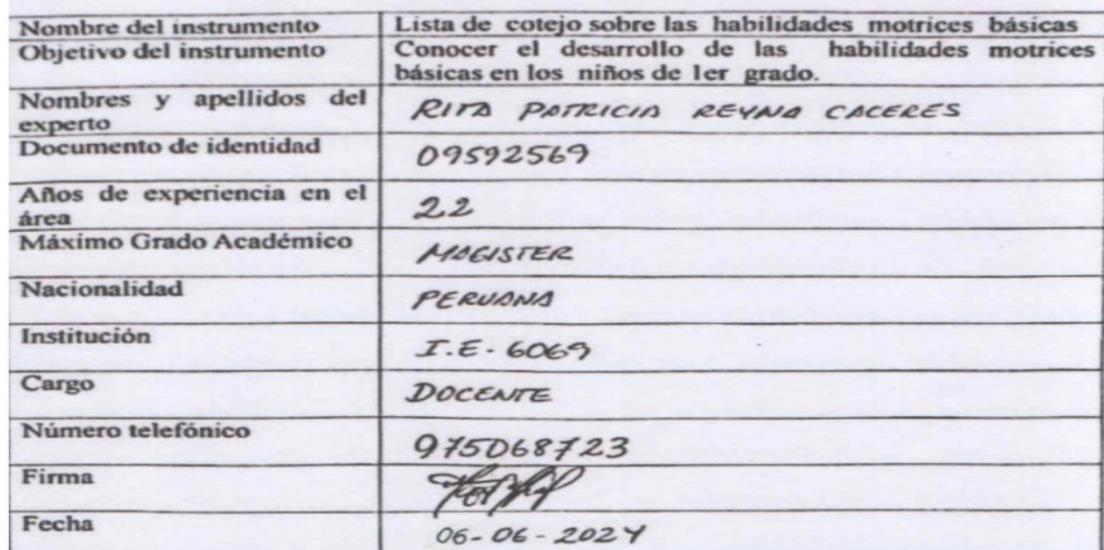 Nombre del instrumento Lista de cotejo sobre las habilidades motrices básicas
Objetivo del instrumento Conocer el desarrollo de las habilidades motrices
básicas en los niños de 1er grado.
Nombres y apellidos del
experto RITA PATRICIA REYNA CACERES
Documento de identidad 09592569
Años de experiencia en el
área 22
Máximo Grado Académico MAGISTER
Nacionalidad PERUANA
Institución I.E. 6069
Cargo DOCENTE
Número telefónico 975068723
Firma
Fecha 06-06-2024